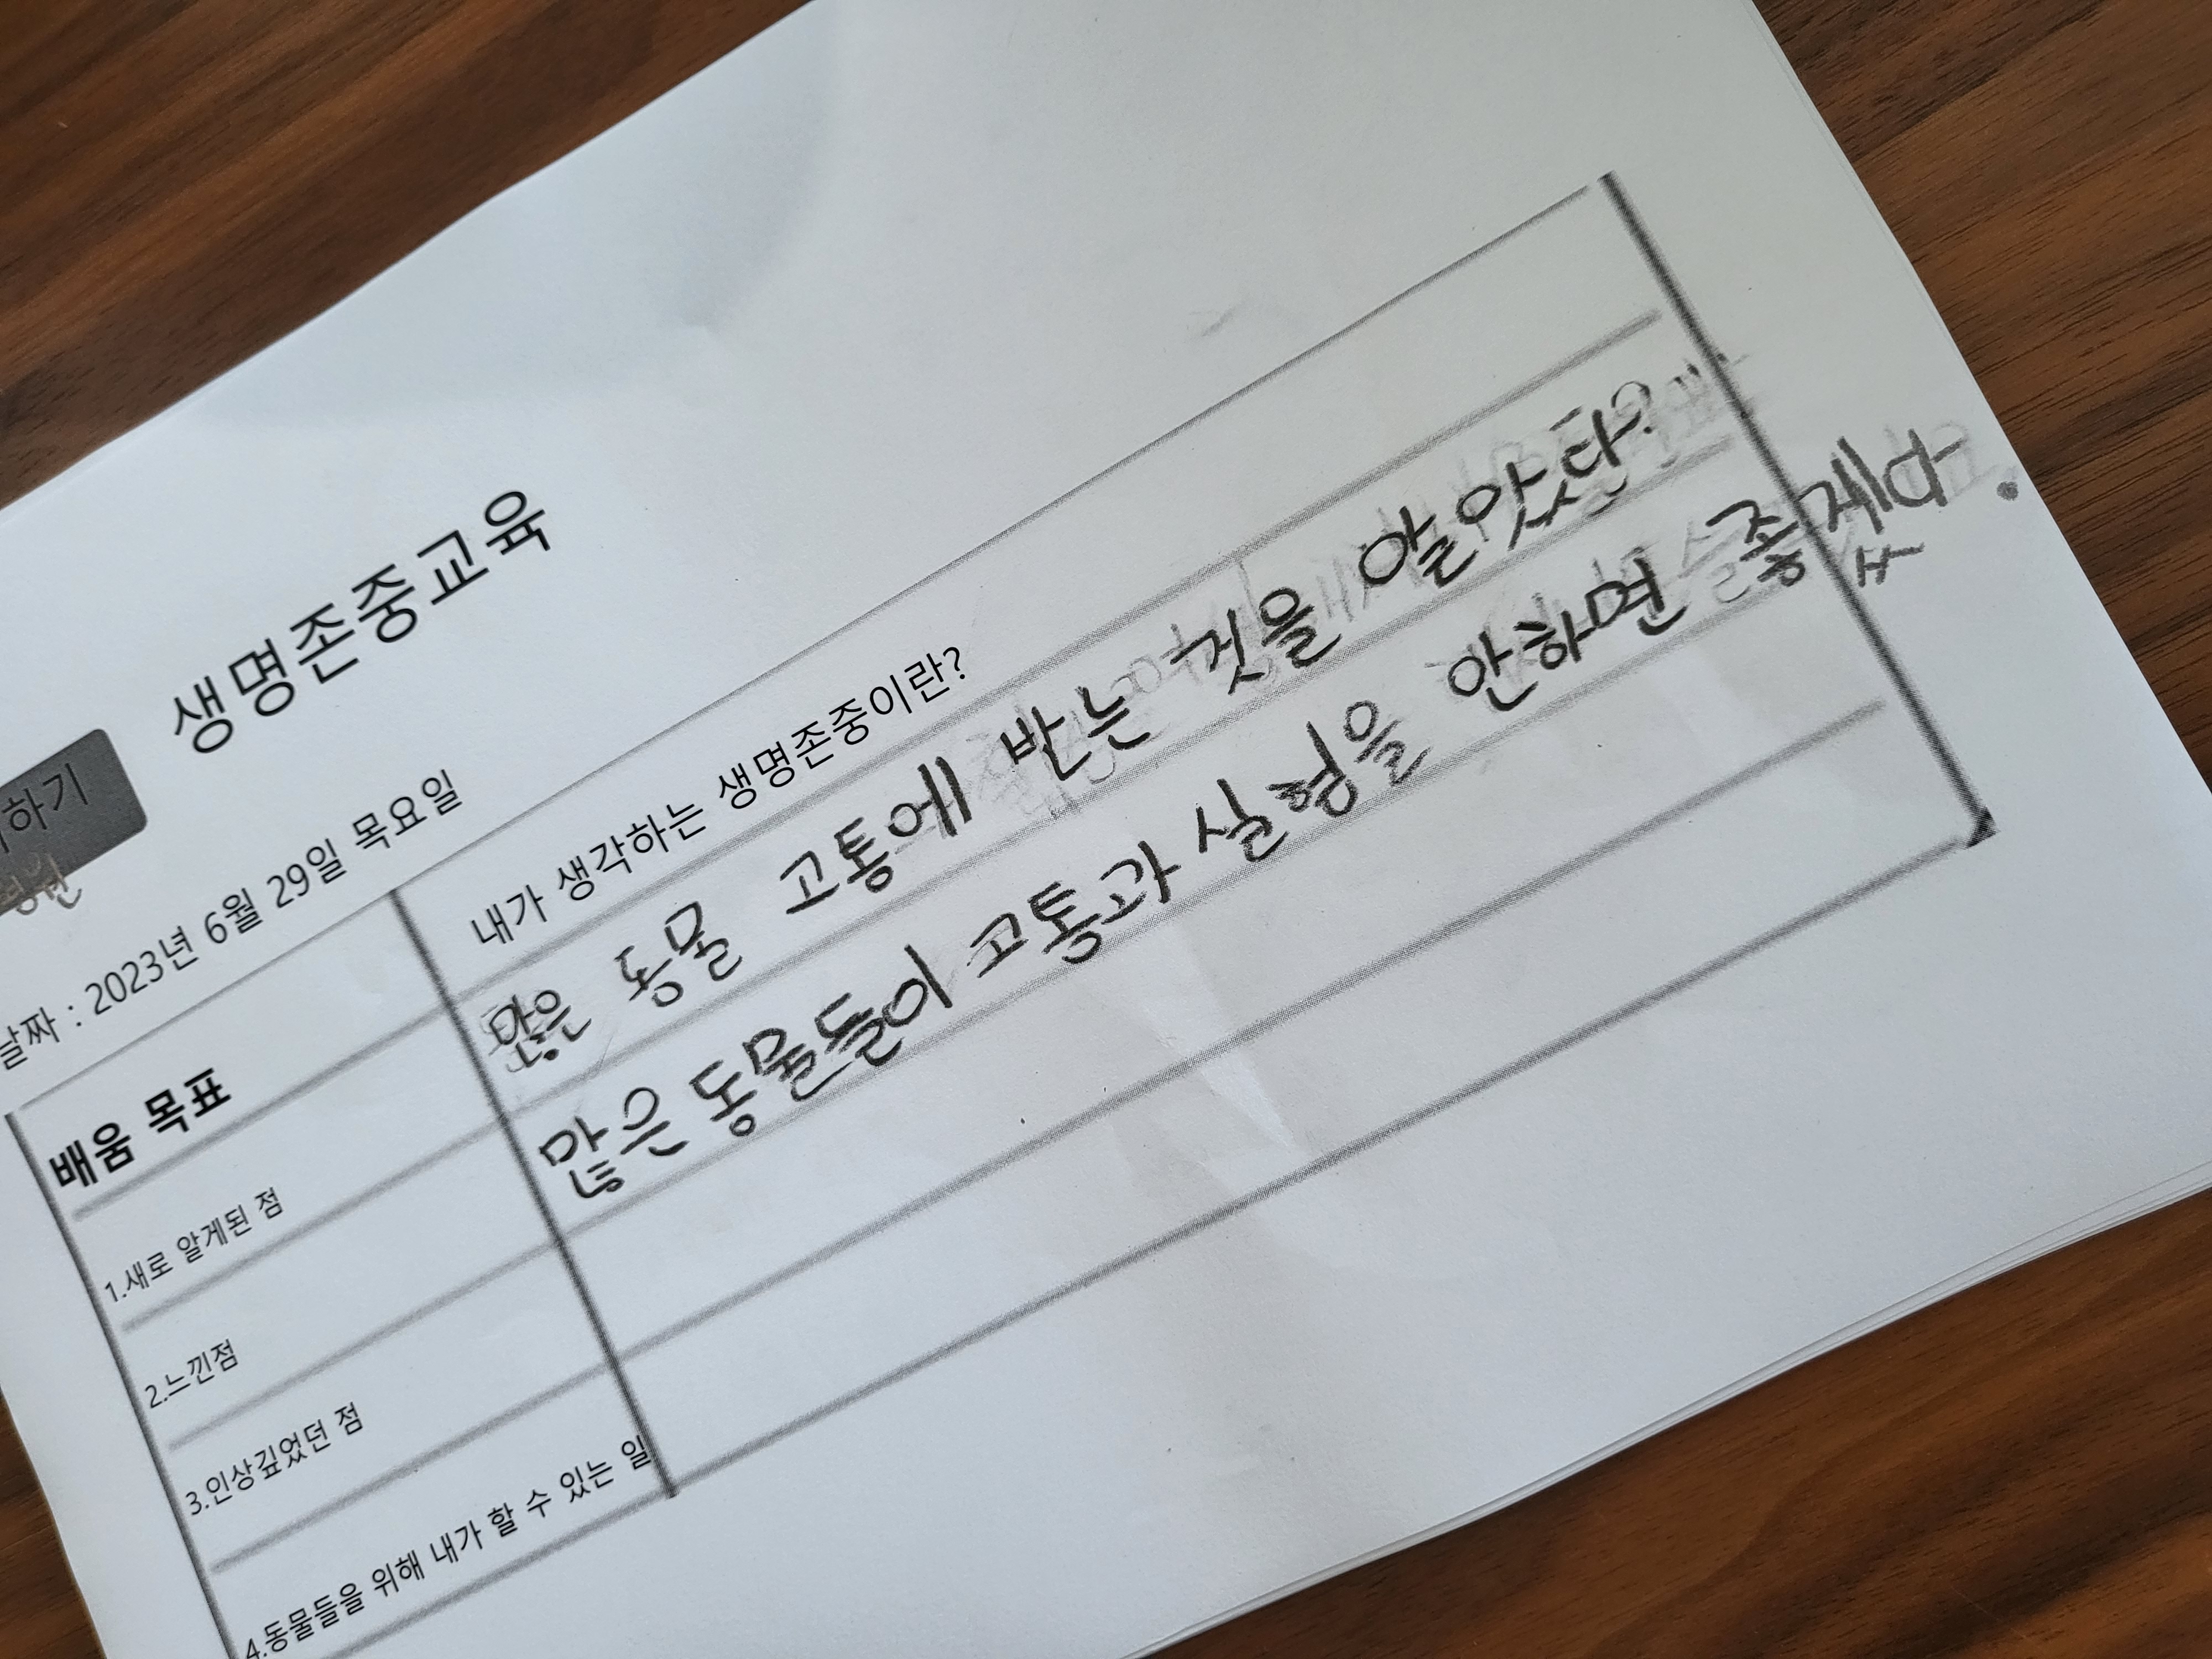 하기
생명존중교육
날짜 : 2023년 6월 29일 목요일
배움 목표
내가 생각하는 생명존중이란?
1.새로 알게된 점
많은 동물 고통에 받는 것을 알았다.
2.느낀점
많은 동물들이 고통과 실험을 안하면 좋겠다.
3.인상깊었던 점
4.동물들을 위해 내가 할 수 있는 일